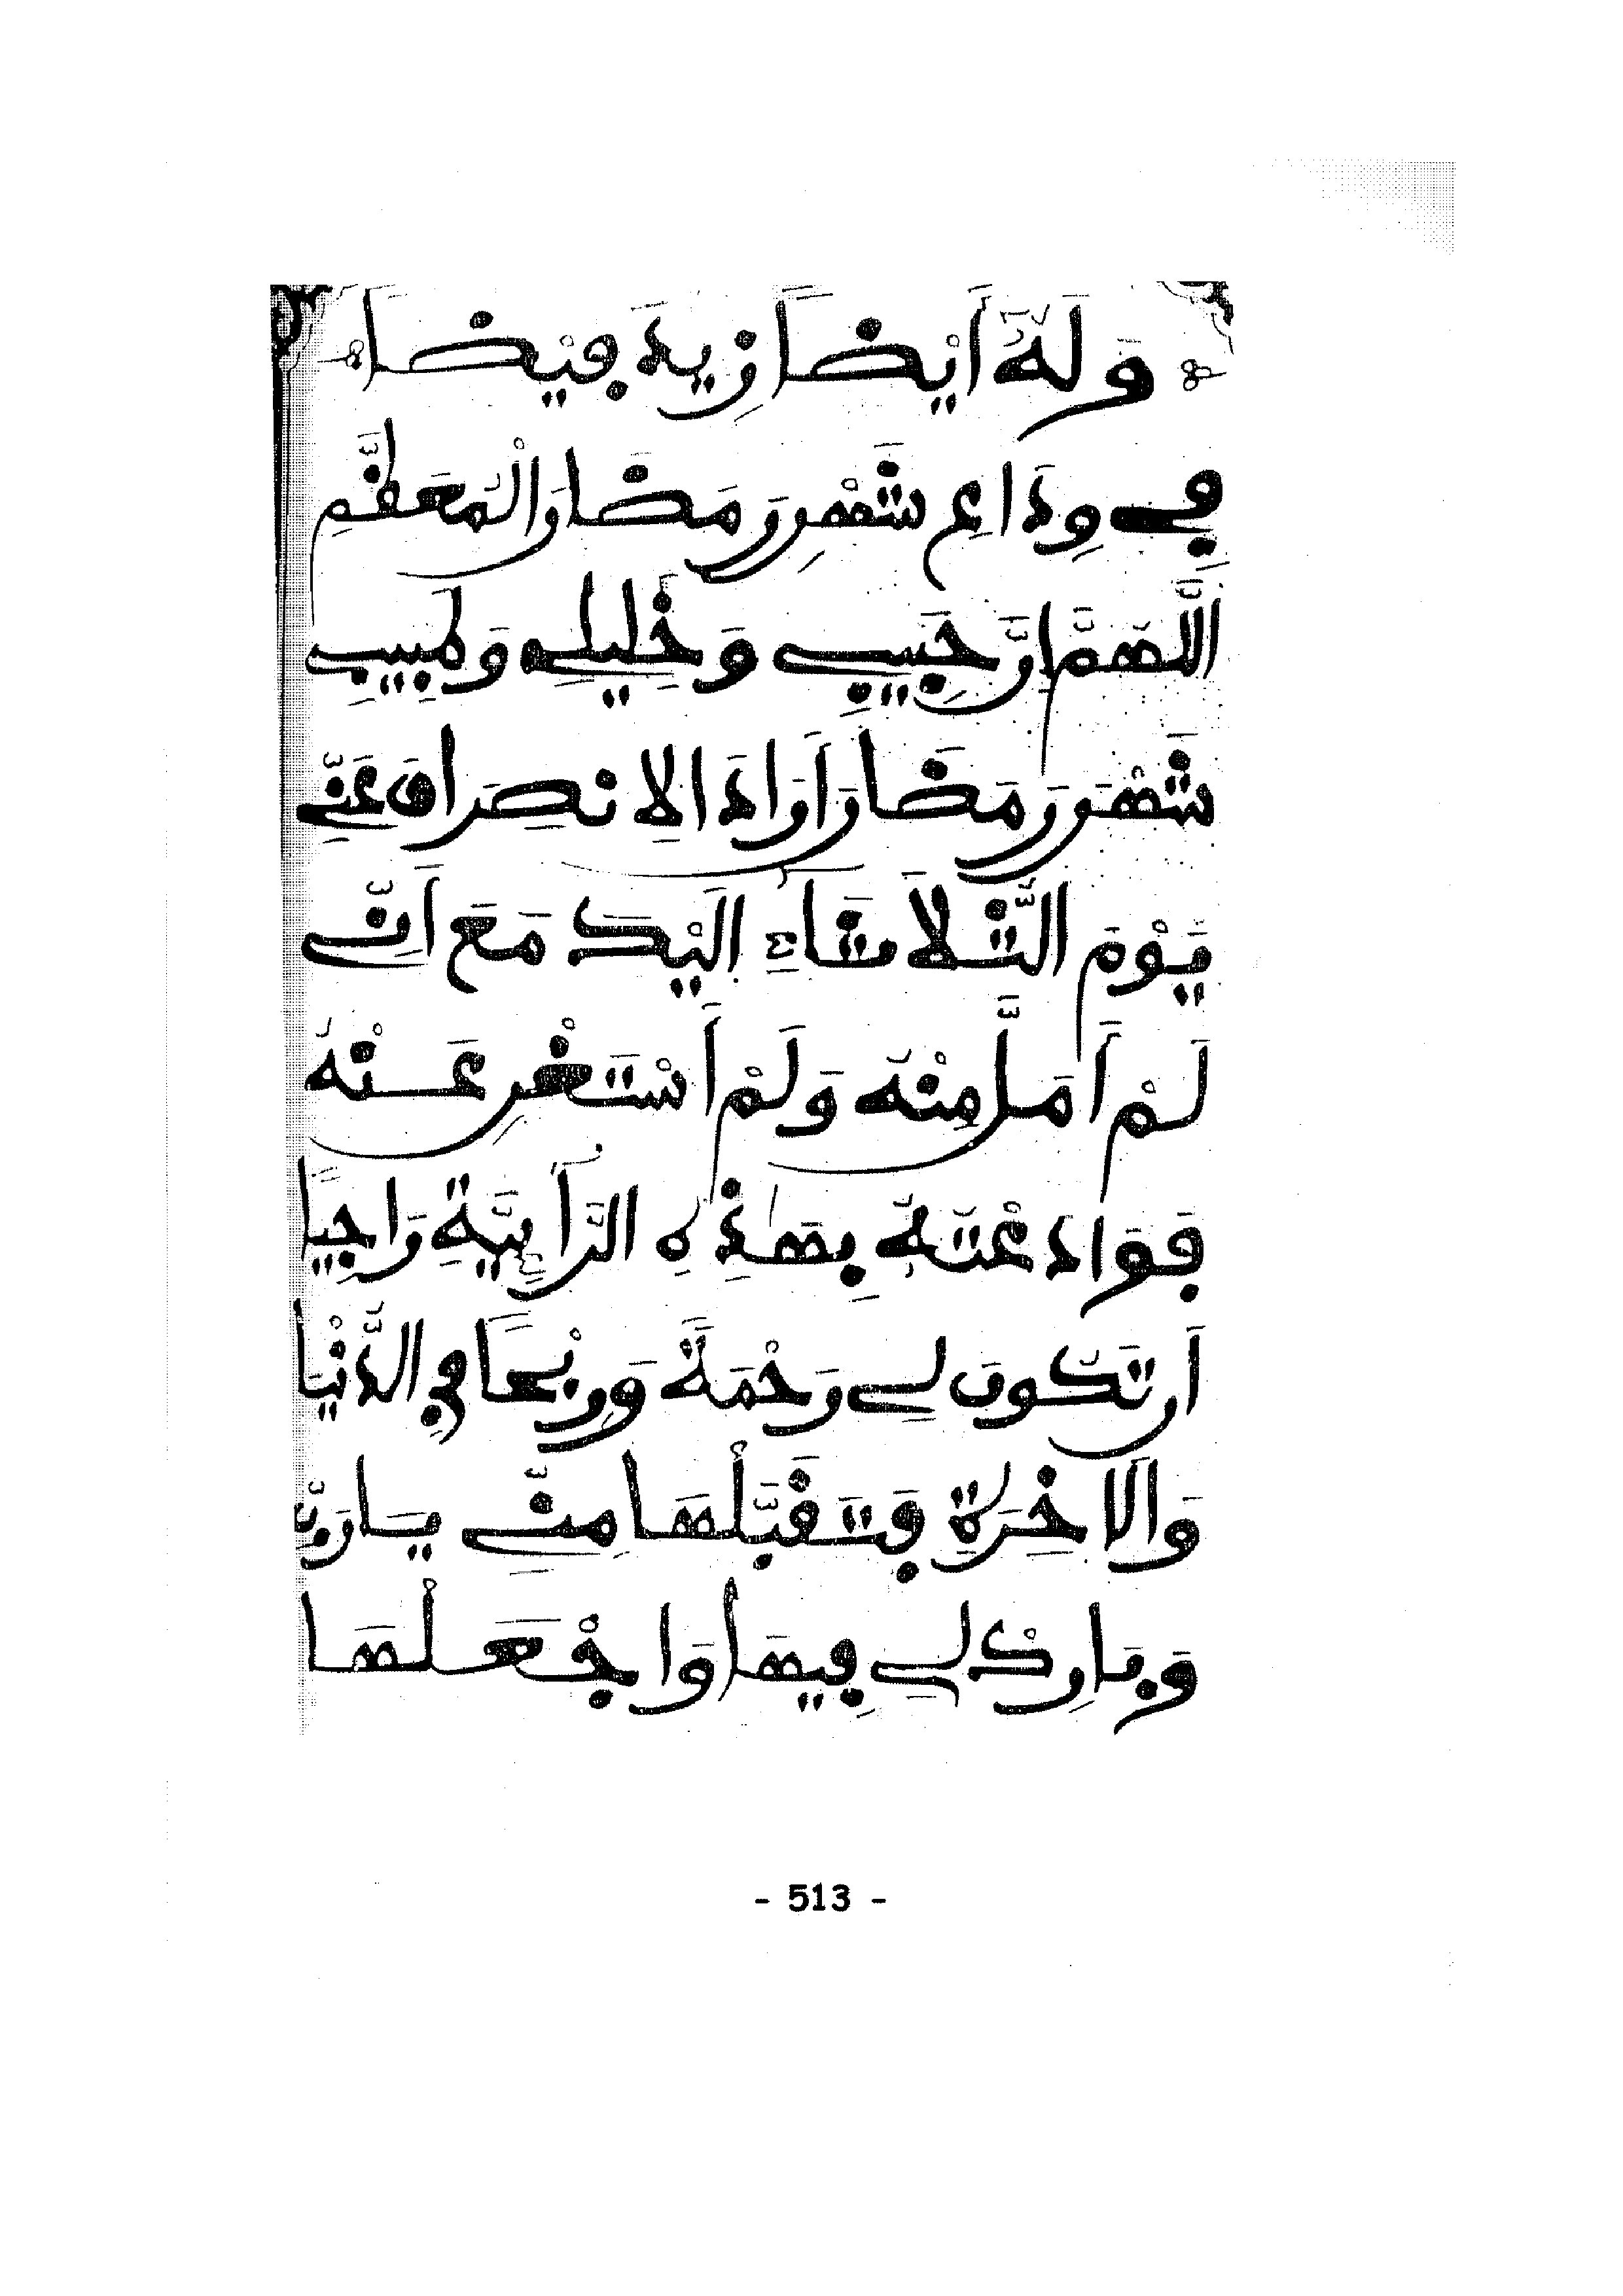 وَلَهُ أَيْضًا زِيدَ فَيْضًا
فِي وِدَاعِ شَهْرِ رَمَضَانَ الْمُعَظَّمِ
اللَّهُمَّ إِنَّ حَبِيبِي وَخَلِيلِي وَطَبِيبِي
شَهْرَ رَمَضَانَ أَرَادَ الِانْصِرَافَ عَنِّي
يَوْمَ الثُّلَاثَاءِ إِلَيْكَ مَعَ أَنِّي
لَمْ أَمَلَّ مِنْهُ وَلَمْ أَسْتَغْنِ عَنْهُ
فَوَادَعْتُهُ بِهَذِهِ الرَّائِيَّةِ رَاجِيًا
أَن تَكُونَ لِي رَحْمَةً وَرِبْحًا فِي الدُّنْيَا
وَالْآخِرَةِ فَتَقَبَّلْهَا مِنِّي يَا رَبِّ
وَبَارِكْ لِي فِيهَا وَاجْعَلْهَا
- 513 -